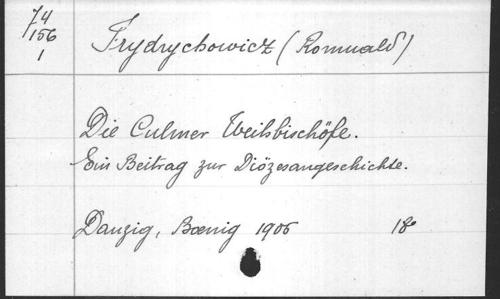 74
156
1
Frydrychowicz (Romuald)
Die Culmer Weihbischöfe.
Ein Beitrag zur Diözesangeschichte.
Danzig, Boenig 1905 18º